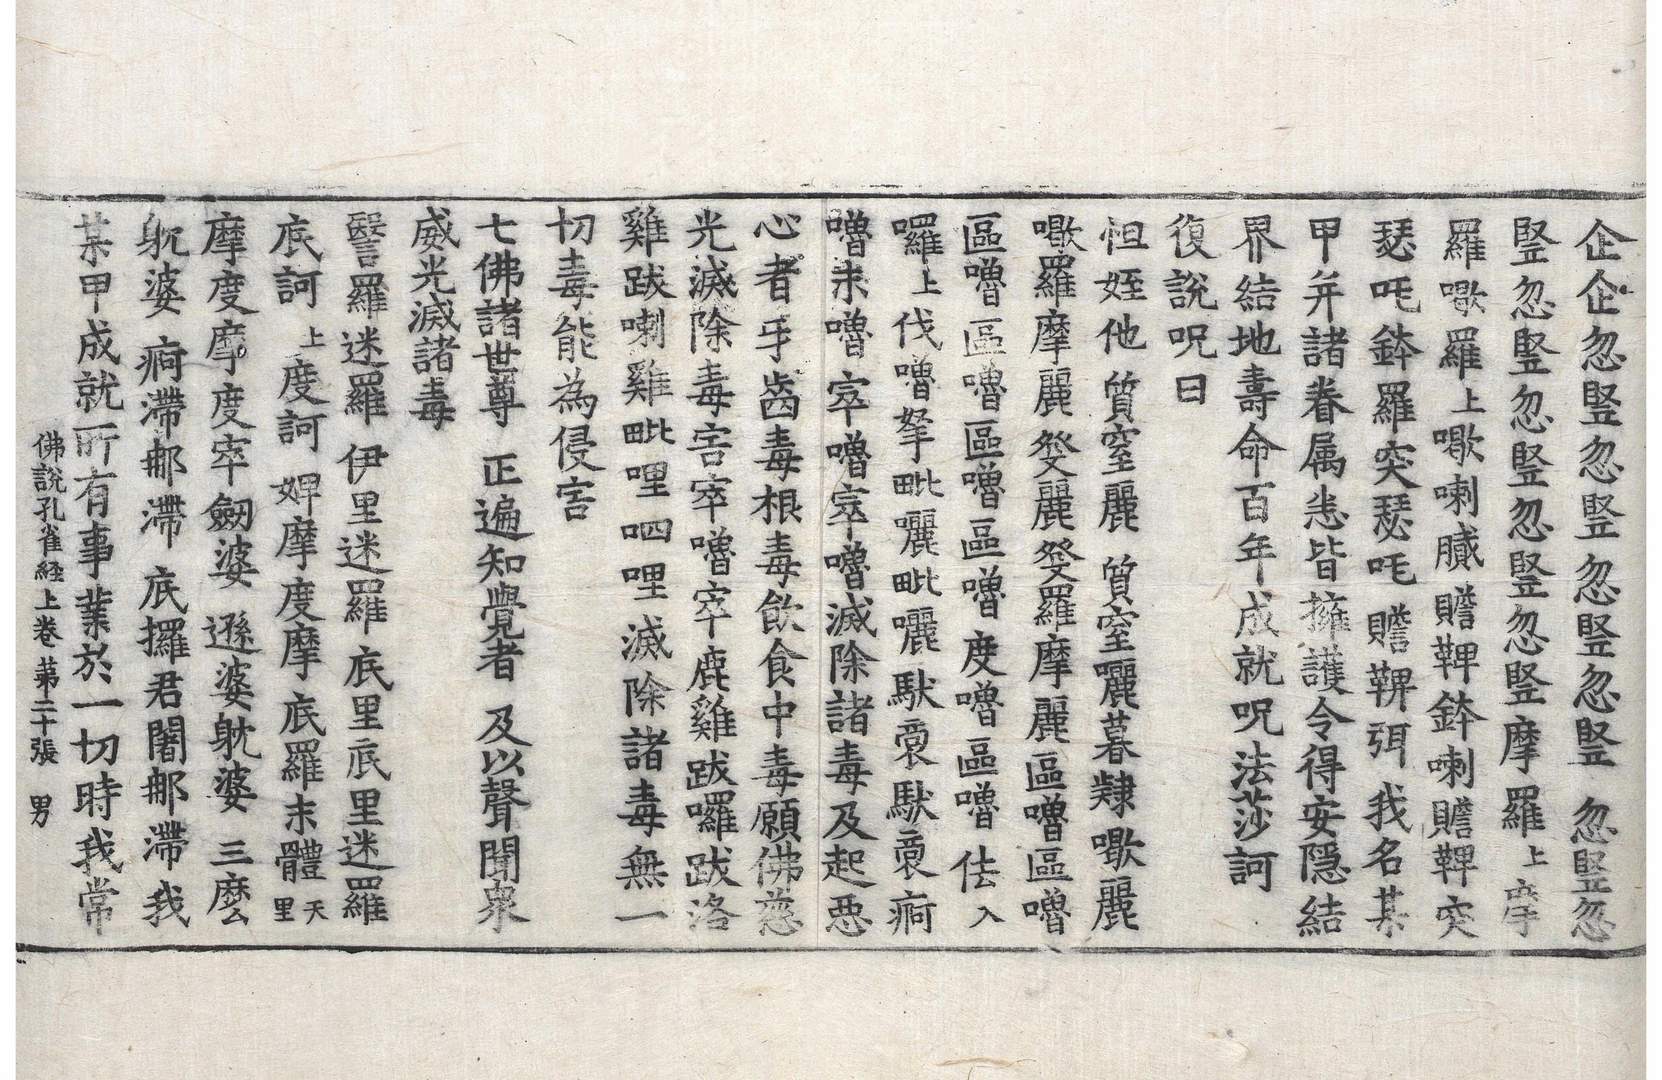 企企忽竪忽竪忽竪忽竪 忽竪忽
竪忽竪忽竪忽竪忽竪摩羅上摩
羅嚫羅上嚫喇膱贍鞞鉢喇贍鞞突
瑟吒鉢羅突瑟吒贍鞞弭我名某
甲并諸眷属悉皆擁護令得安隱結
界結地壽命百年成就呪法莎訶
復說呪曰
怛姪他 質窒麗 質窒囇暮隸嚫麗
嚫羅摩麗癹麗癹羅摩麗區嚕區嚕
區嚕區嚕區嚕區嚕度嚕區嚕佉入
囉上伐嚕拏毗囇毗囇馱䙚馱䙚痾
嚕末嚕窣嚕窣嚕滅除諸毒及起惡
心者手齒毒根毒飲食中毒願佛慈
光滅除毒害窣嚕窣鹿雞跋囉跋洛
雞跋喇雞毗哩呬哩滅除諸毒無一
切毒能為侵害
七佛諸世尊 正遍知覺者 及以聲聞衆
威光滅諸毒
醫羅迷羅 伊里迷羅底里底里迷羅
底訶 上度訶 婢摩度摩 底羅末體天里
摩度摩度窣劒婆 遜婆躭婆 三麼
躭婆 痾滯那滯 底攞君闍那滯我
某甲成就所有事業於一切時我常
佛說孔雀経上卷 苐二十張 男